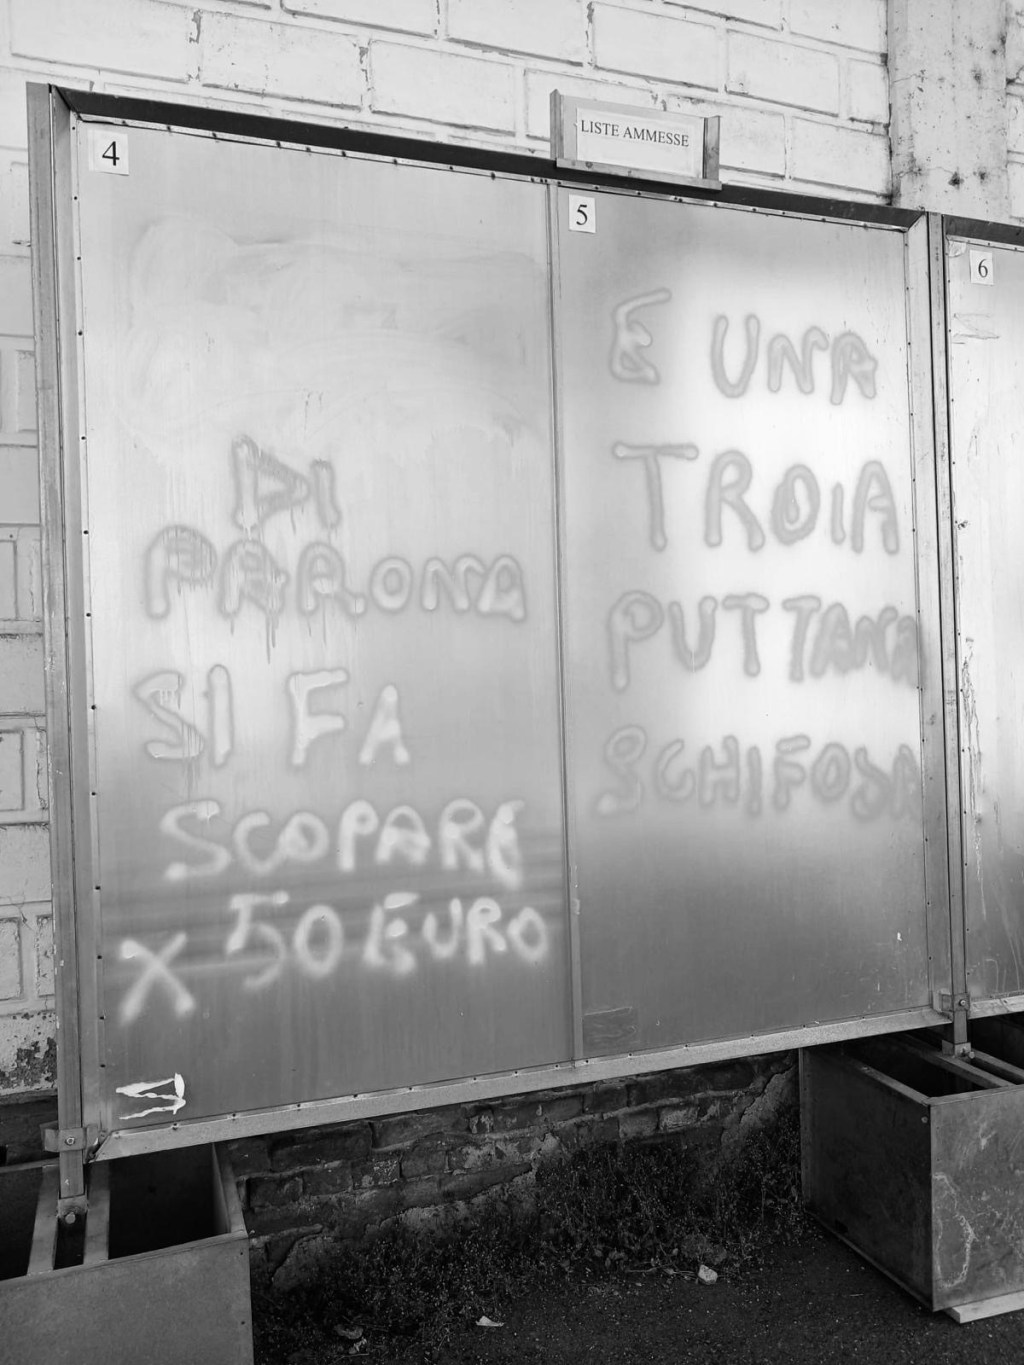 LISTE AMMESSE
4
DI
PARONA
SI FA
SCOPARE
X 50 EURO
5
E UNA
TROIA
PUTTANA
SCHIFOSA
6